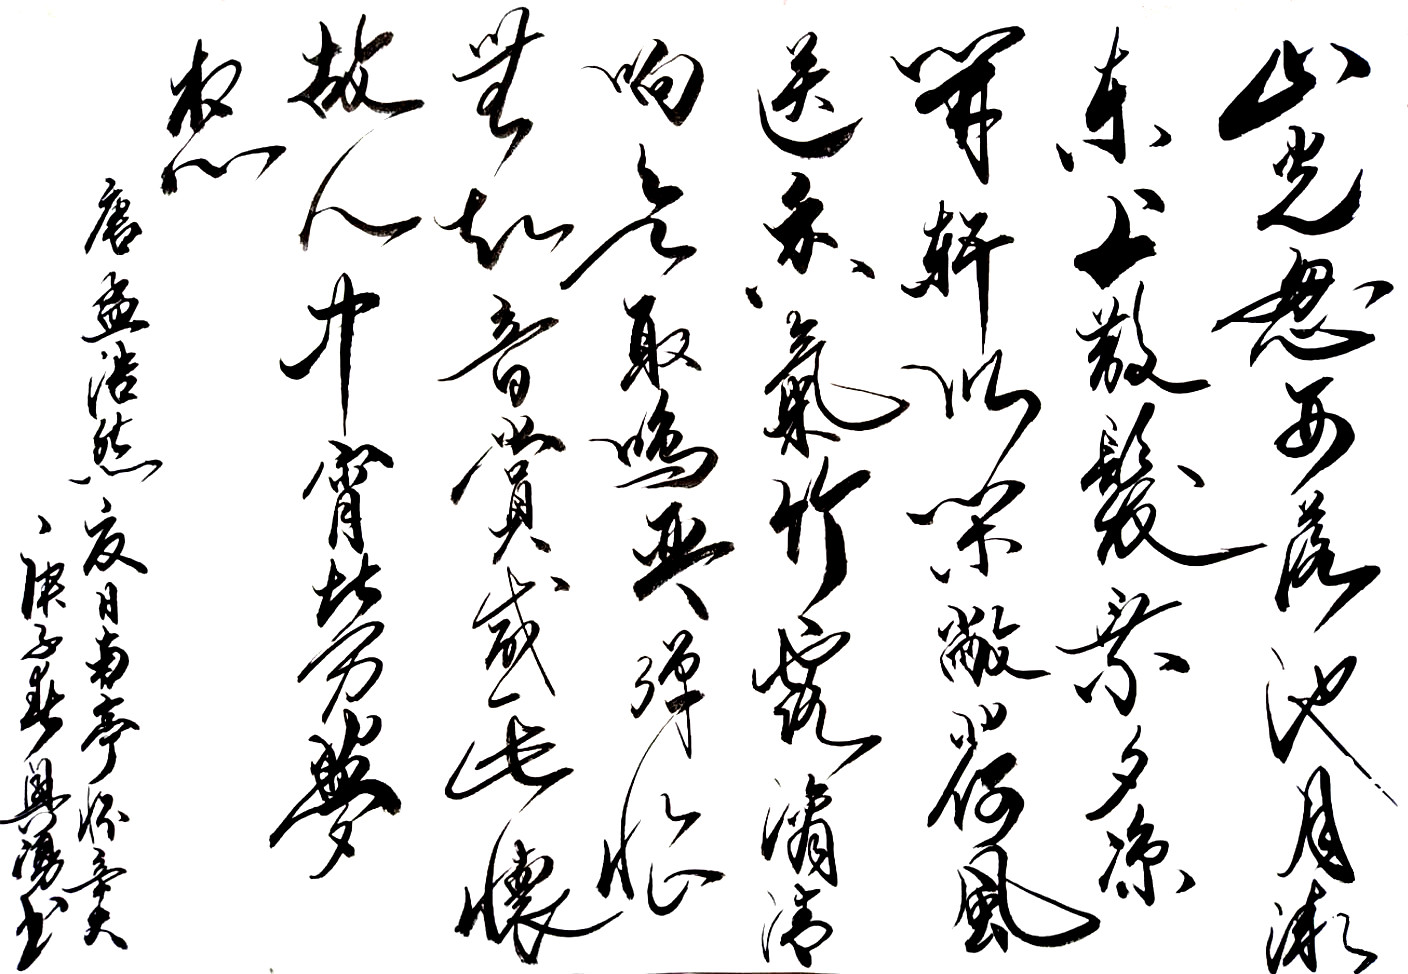 山光忽西落池月漸
东上散髮乘夕涼
開軒卧閑敞荷風
送香氣竹露滴清
响欲取鳴琴彈恨
無知音賞感此懷
故人中宵劳夢
想
唐孟浩然夏日南亭怀辛大
庚子春興湧书